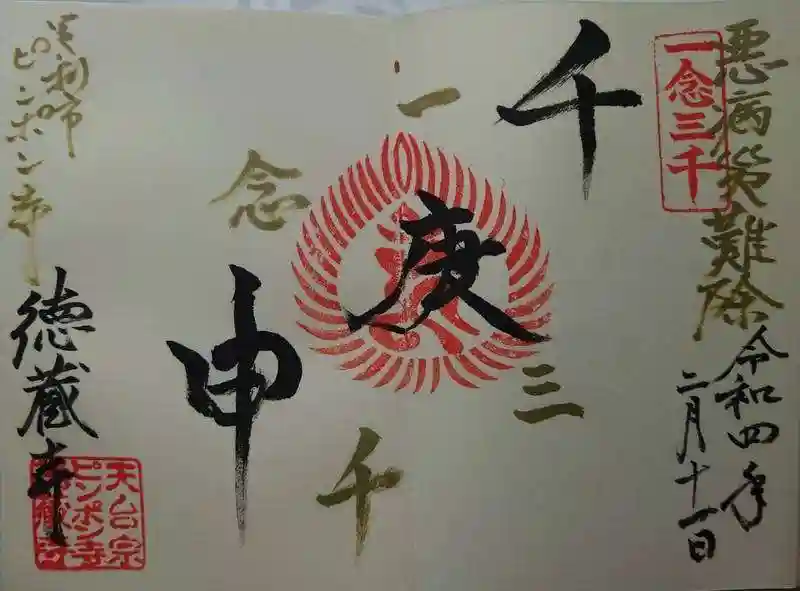 悪病災難除
一念三千
令和四年
二月十一日
千
庚
申
一
念
三
千
足利市
ピンポン寺
徳蔵寺
天台宗
ピンポン寺
徳蔵寺